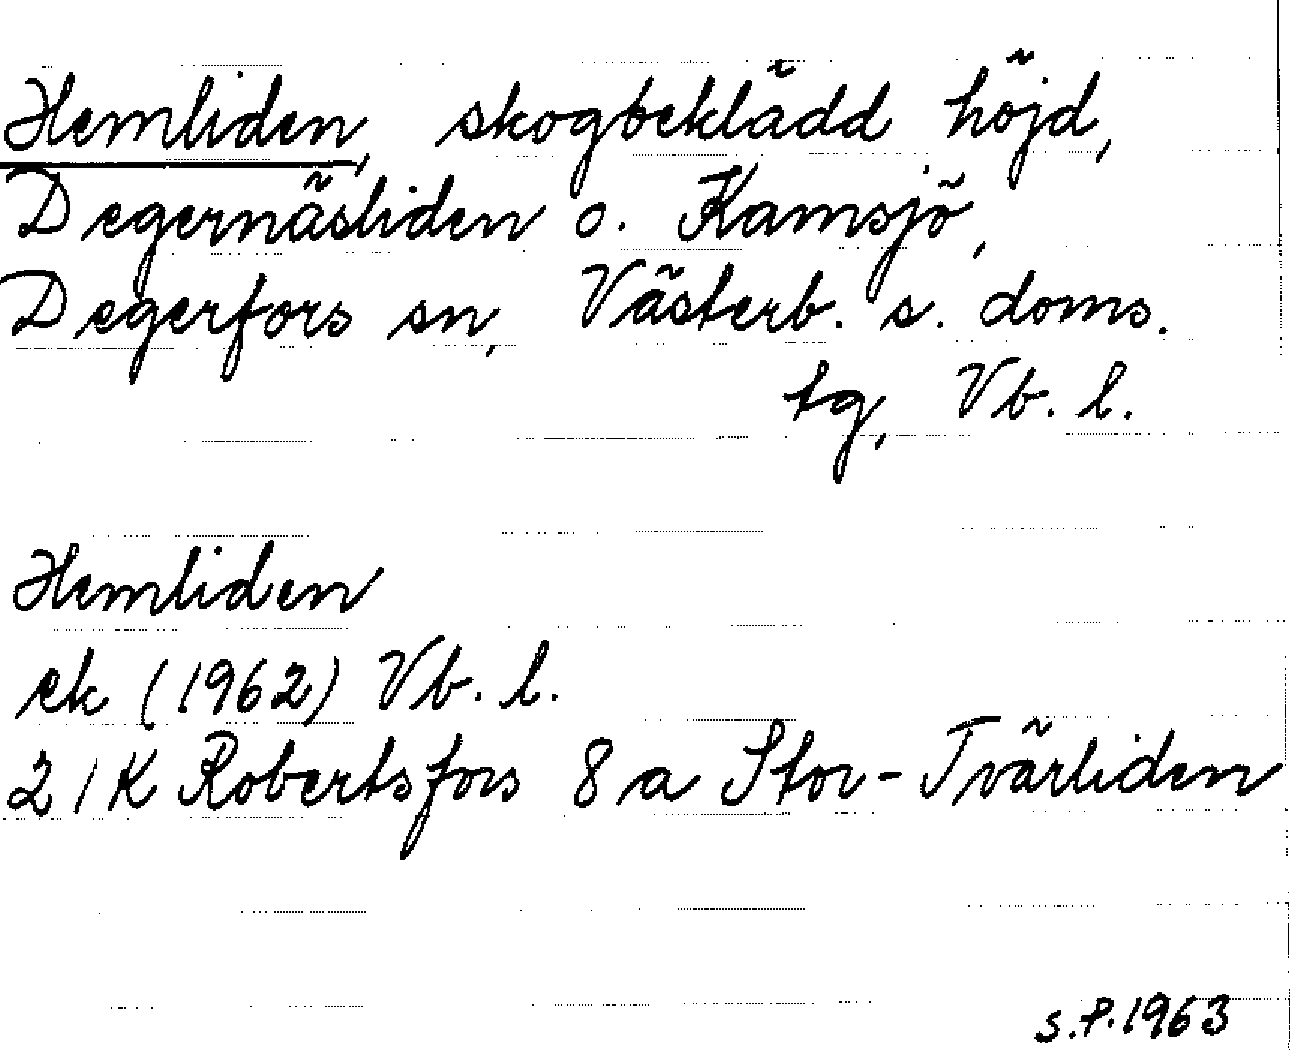 Hemliden, skogbeklädd höjd,
Degernäsliden o. Kamsjö,
Degerfors sn, Västerb. s. doms.
tg, Vb. l.
Hemliden
ek (1962) Vb. l.
21K Robertsfors 8 a Stor-Tvärliden
S.P. 1963